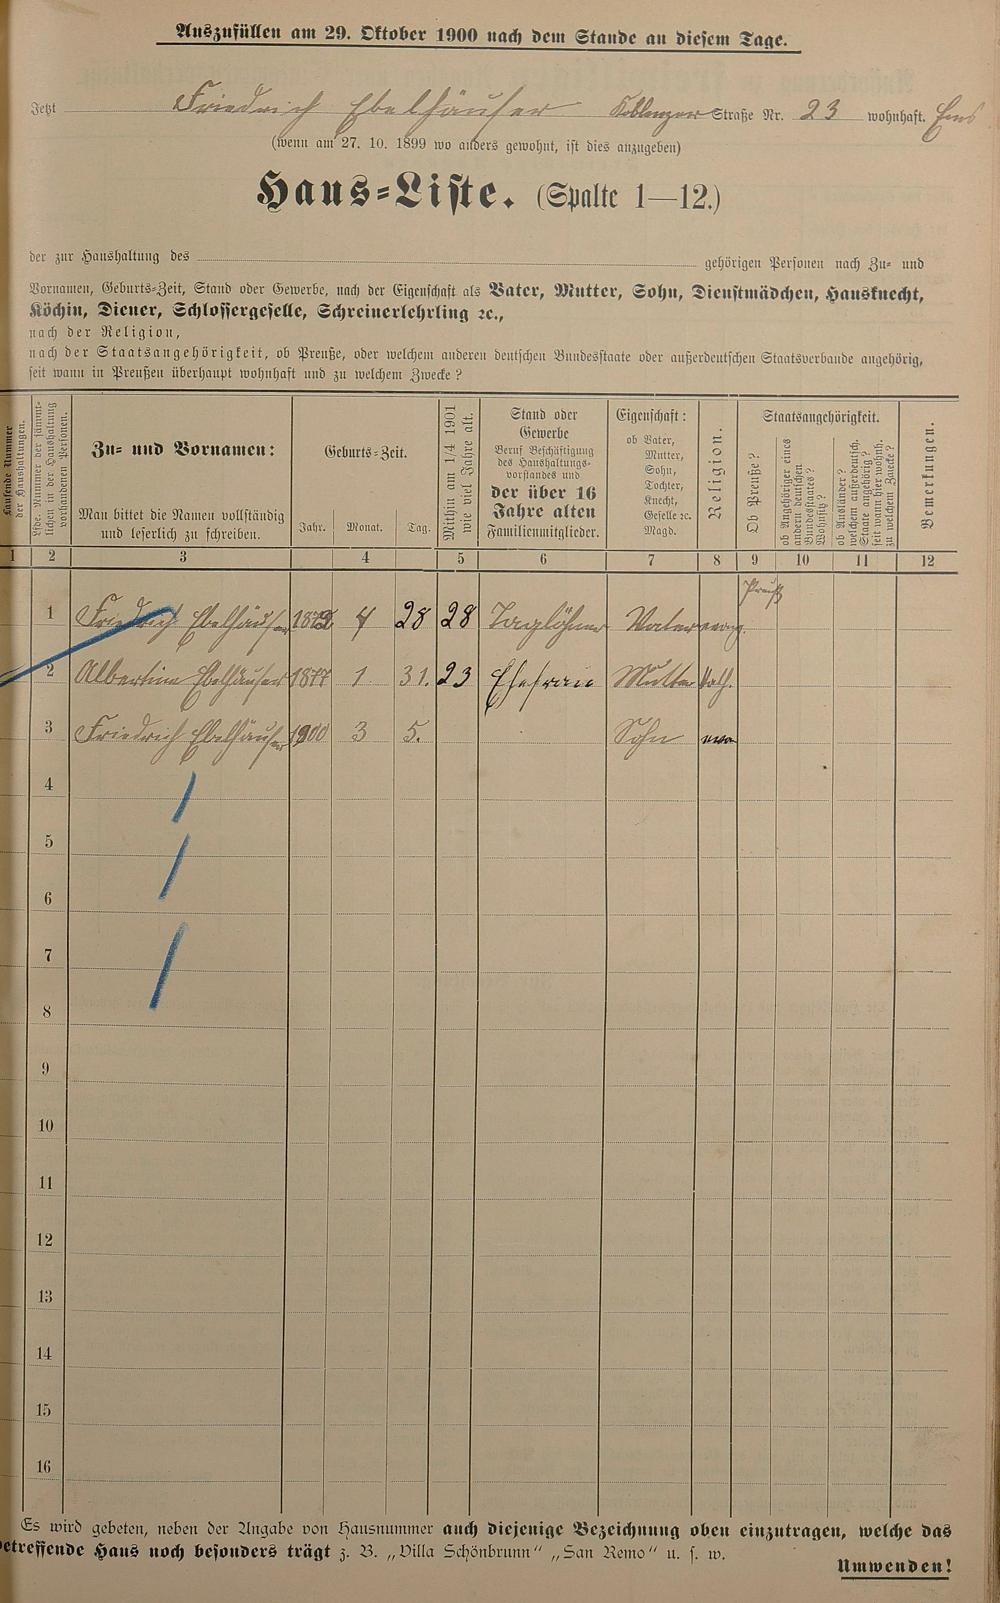 Auszufüllen am 29. Oktober 1900 nach dem Stande an diesem Tage.
Jetzt Friedrich Ebelhäuser Koblenzer Straße Nr. 23 wohnhaft. Ems
(wenn am 27. 10. 1899 wo anders gewohnt, ist dies anzugeben)
Haus-Liste. (Spalte 1—12.)
der zur Haushaltung des gehörigen Personen nach Zu- und
Vornamen, Geburts-Zeit, Stand oder Gewerbe, nach der Eigenschaft als Vater, Mutter, Sohn, Dienstmädchen, Hausknecht,
Köchin, Diener, Schlossergeselle, Schreinerlehrling ꝛc.,
nach der Religion,
nach der Staatsangehörigkeit, ob Preuße, oder welchem anderen deutschen Bundesstaate oder außerdeutschen Staatsverbande angehörig,
seit wann in Preußen überhaupt wohnhaft und zu welchem Zwecke?
Laufende Nummer
der Haushaltungen.
Lfde. Nummer der sämmt-
lichen in der Haushaltung
vorhandenen Personen.
Zu- und Vornamen:
Man bittet die Namen vollständig
und leserlich zu schreiben.
Geburts-Zeit.
Jahr. Monat. Tag.
Mithin am 1/4 1901
wie viel Jahre alt.
Stand oder
Gewerbe
Beruf Beschäftigung
des Haushaltungs-
vorstandes und
der über 16
Jahre alten
Familienmitglieder.
Eigenschaft:
ob Vater,
Mutter,
Sohn,
Tochter,
Knecht,
Geselle ꝛc.
Magd.
Religion.
Staatsangehörigkeit.
Ob Preuße?
ob Angehöriger eines
andern deutschen
Bundesstaates?
Wohnsitz?
ob Ausländer?
welchem außerdeutsch.
Staate angehörig?
seit wann hier wohnh.
zu welchem Zwecke?
Bemerkungen.
1 2 3 4 5 6 7 8 9 10 11 12
1 Friedrich Ebelhäuser 1872 4 28 28 Taglöhner Vater evang. Preuß
2 Albertine Ebelhäuser 1877 1 31. 23 Ehefrau Mutter kath.
3 Friedrich Ebelhäuser 1900 3 5. Sohn
4
5
6
7
8
9
10
11
12
13
14
15
16
Es wird gebeten, neben der Angabe von Hausnummer auch diejenige Bezeichnung oben einzutragen, welche das
betreffende Haus noch besonders trägt z. B. „Villa Schönbrunn“ „San Remo“ u. s. w.
Umwenden!